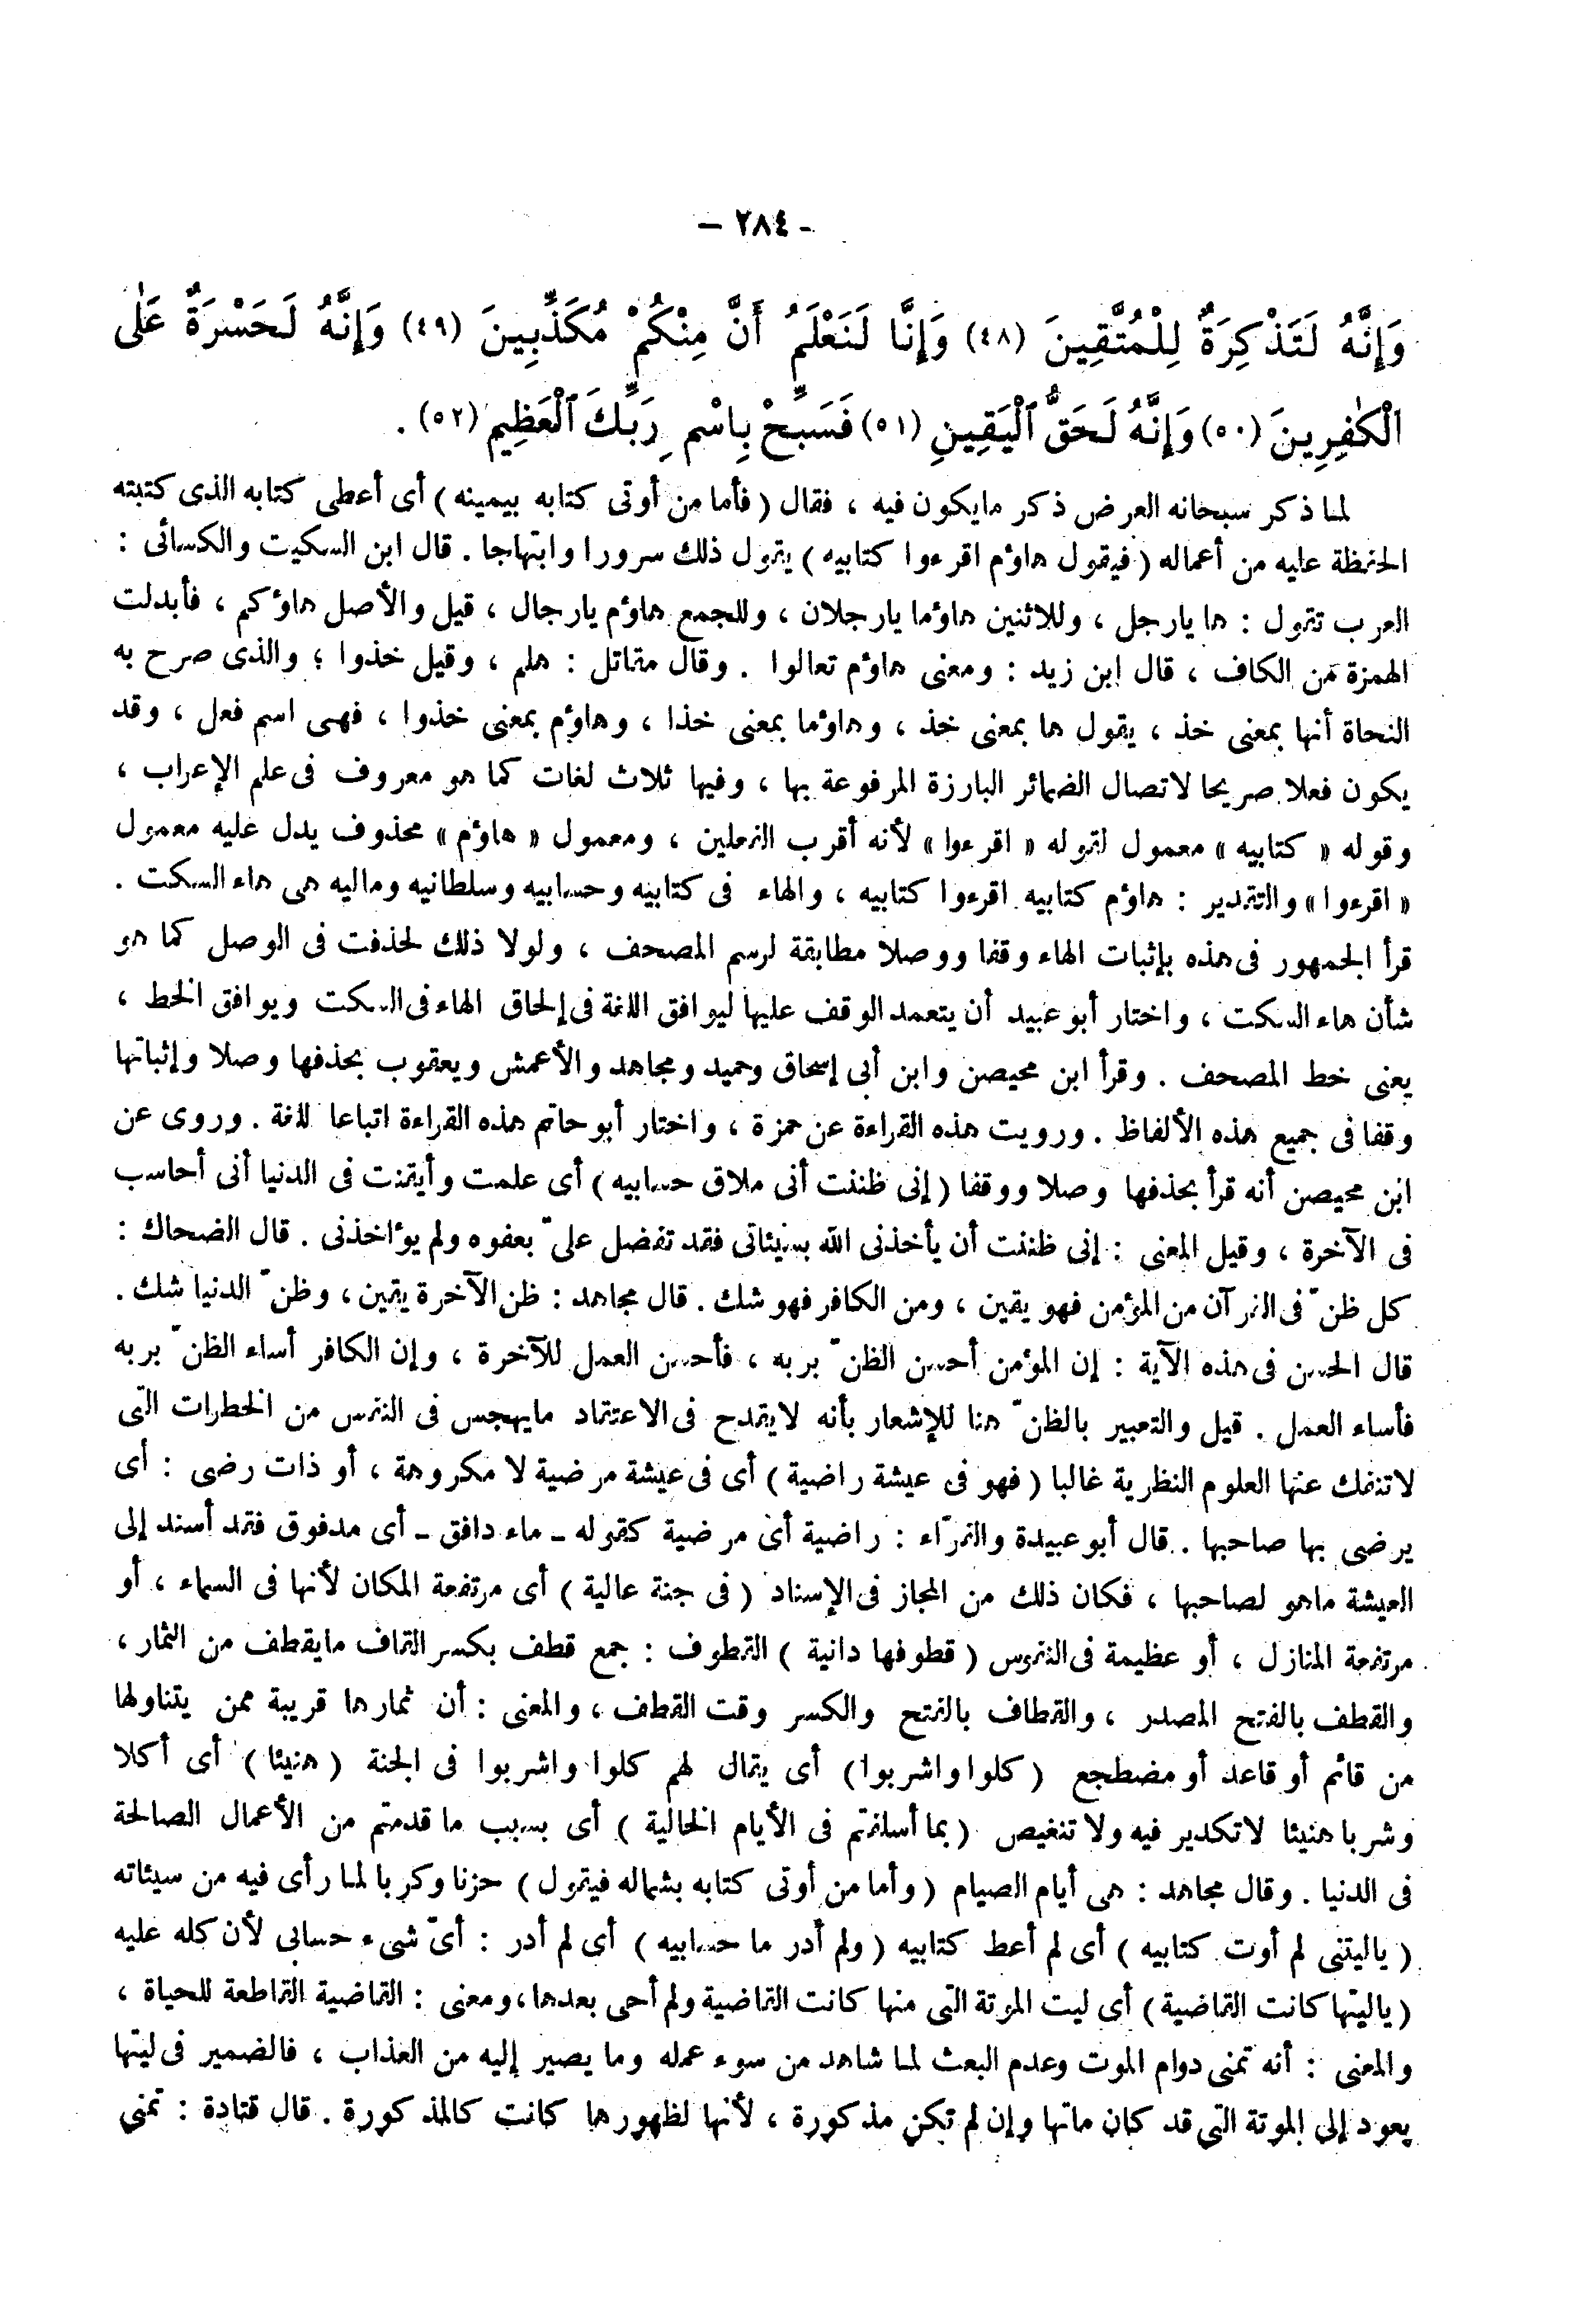 - ٢٨٤ -
وَإِنَّهُ لَتَذْكِرَةٌ لِلْمُتَّقِينَ (٤٨) وَإِنَّا لَنَعْلَمُ أَنَّ مِنْكُمْ مُكَذِّبِينَ (٤٩) وَإِنَّهُ لَحَسْرَةٌ عَلَى
الْكٰفِرِينَ (٥٠) وَإِنَّهُ لَحَقُّ ٱلْيَقِينِ (٥١) فَسَبِّحْ بِاسْمِ رَبِّكَ ٱلْعَظِيمِ (٥٢) .
لما ذكر سبحانه العرض ذكر مايكون فيه ، فقال ( فأما من أوتى كتابه بيمينه ) أى أعطى كتابه الذى كتبته
الحفظة عليه من أعماله ( فيقول هاؤم اقرءوا كتابيه ) يقول ذلك سرورا وابتهاجا . قال ابن السكيت والكسائى :
العرب تقول : ها يارجل ، وللاثنين هاؤما يارجلان ، وللجمع هاؤم يارجال ، قيل والأصل هاؤكم ، فأبدلت
الهمزة من الكاف ، قال ابن زيد : ومعنى هاؤم تعالوا . وقال مقاتل : هلم ، وقيل خذوا ؛ والذى صرح به
النحاة أنها بمعنى خذ ، يقول ها بمعنى خذ ، وهاؤما بمعنى خذا ، وهاؤم بمعنى خذوا ، فهى اسم فعل ، وقد
يكون فعلا صريحا لاتصال الضمائر البارزة المرفوعة بها ، وفيها ثلاث لغات كما هو معروف فى علم الإعراب ،
وقوله « كتابيه » معمول لقوله « اقرءوا » لأنه أقرب الفعلين ، ومعمول « هاؤم » محذوف يدل عليه معمول
« اقرءوا » والتقدير : هاؤم كتابيه اقرءوا كتابيه ، والهاء فى كتابيه وحسابيه وسلطانيه وماليه هى هاء السكت .
قرأ الجمهور فى هذه بإثبات الهاء وقفا ووصلا مطابقة لرسم المصحف ، ولولا ذلك لحذفت فى الوصل كما هو
شأن هاء السكت ، واختار أبو عبيد أن يتعمد الوقف عليها ليوافق اللغة فى إلحاق الهاء فى السكت ويوافق الخط ،
يعنى خط المصحف . وقرأ ابن محيصن وابن أبى إسحاق وحميد ومجاهد والأعمش ويعقوب بحذفها وصلا وإثباتها
وقفا فى جميع هذه الألفاظ . ورويت هذه القراءة عن حمزة ، واختار أبو حاتم هذه القراءة اتباعا للغة . وروى عن
ابن محيصن أنه قرأ بحذفها وصلا ووقفا ( إنى ظننت أنى ملاق حسابيه ) أى علمت وأيقنت فى الدنيا أنى أحاسب
فى الآخرة ، وقيل المعنى : إنى ظننت أن يأخذنى الله بسيئاتى فقد تفضل علىّ بعفوه ولم يؤاخذنى . قال الضحاك :
كل ظنّ فى القرآن من المؤمن فهو يقين ، ومن الكافر فهو شك . قال مجاهد : ظن الآخرة يقين ، وظنّ الدنيا شك .
قال الحسن فى هذه الآية : إن المؤمن أحسن الظنّ بربه ، فأحسن العمل للآخرة ، وإن الكافر أساء الظنّ بربه
فأساء العمل . قيل والتعبير بالظنّ هنا للإشعار بأنه لايقدح فى الاعتقاد مايهجس فى النفس من الخطرات التى
لاتنفك عنها العلوم النظرية غالبا ( فهو فى عيشة راضية ) أى فى عيشة مرضية لا مكروهة ، أو ذات رضى : أى
يرضى بها صاحبها . قال أبو عبيدة والفرّاء : راضية أى مرضية كقوله ـ ماء دافق ـ أى مدفوق فقد أسند إلى
العيشة ماهو لصاحبها ، فكان ذلك من المجاز فى الإسناد ( فى جنة عالية ) أى مرتفعة المكان لأنها فى السماء ، أو
مرتفعة المنازل ، أو عظيمة فى النفوس ( قطوفها دانية ) القطوف : جمع قطف بكسر القاف مايقطف من الثمار ،
والقطف بالفتح المصدر ، والقطاف بالفتح والكسر وقت القطف ، والمعنى : أن ثمارها قريبة ممن يتناولها
من قائم أو قاعد أو مضطجع ( كلوا واشربوا ) أى يقال لهم كلوا واشربوا فى الجنة ( هنيئا ) أى أكلا
وشربا هنيئا لاتكدير فيه ولا تنغيص ( بما أسلفتم فى الأيام الخالية ) أى بسبب ما قدمتم من الأعمال الصالحة
فى الدنيا . وقال مجاهد : هى أيام الصيام ( وأما من أوتى كتابه بشماله فيقول ) حزنا وكربا لما رأى فيه من سيئاته
( ياليتنى لم أوت كتابيه ) أى لم أعط كتابيه ( ولم أدر ما حسابيه ) أى لم أدر : أىّ شىء حسابى لأن كله عليه
( ياليتها كانت القاضية ) أى ليت الموتة التى متها كانت القاضية ولم أحى بعدها ، ومعنى : القاضية القاطعة للحياة ،
والمعنى : أنه تمنى دوام الموت وعدم البعث لما شاهد من سوء عمله وما يصير إليه من العذاب ، فالضمير فى ليتها
يعود إلى الموتة التى قد كان ماتها وإن لم تكن مذكورة ، لأنها لظهورها كانت كالمذكورة . قال قتادة : تمنى